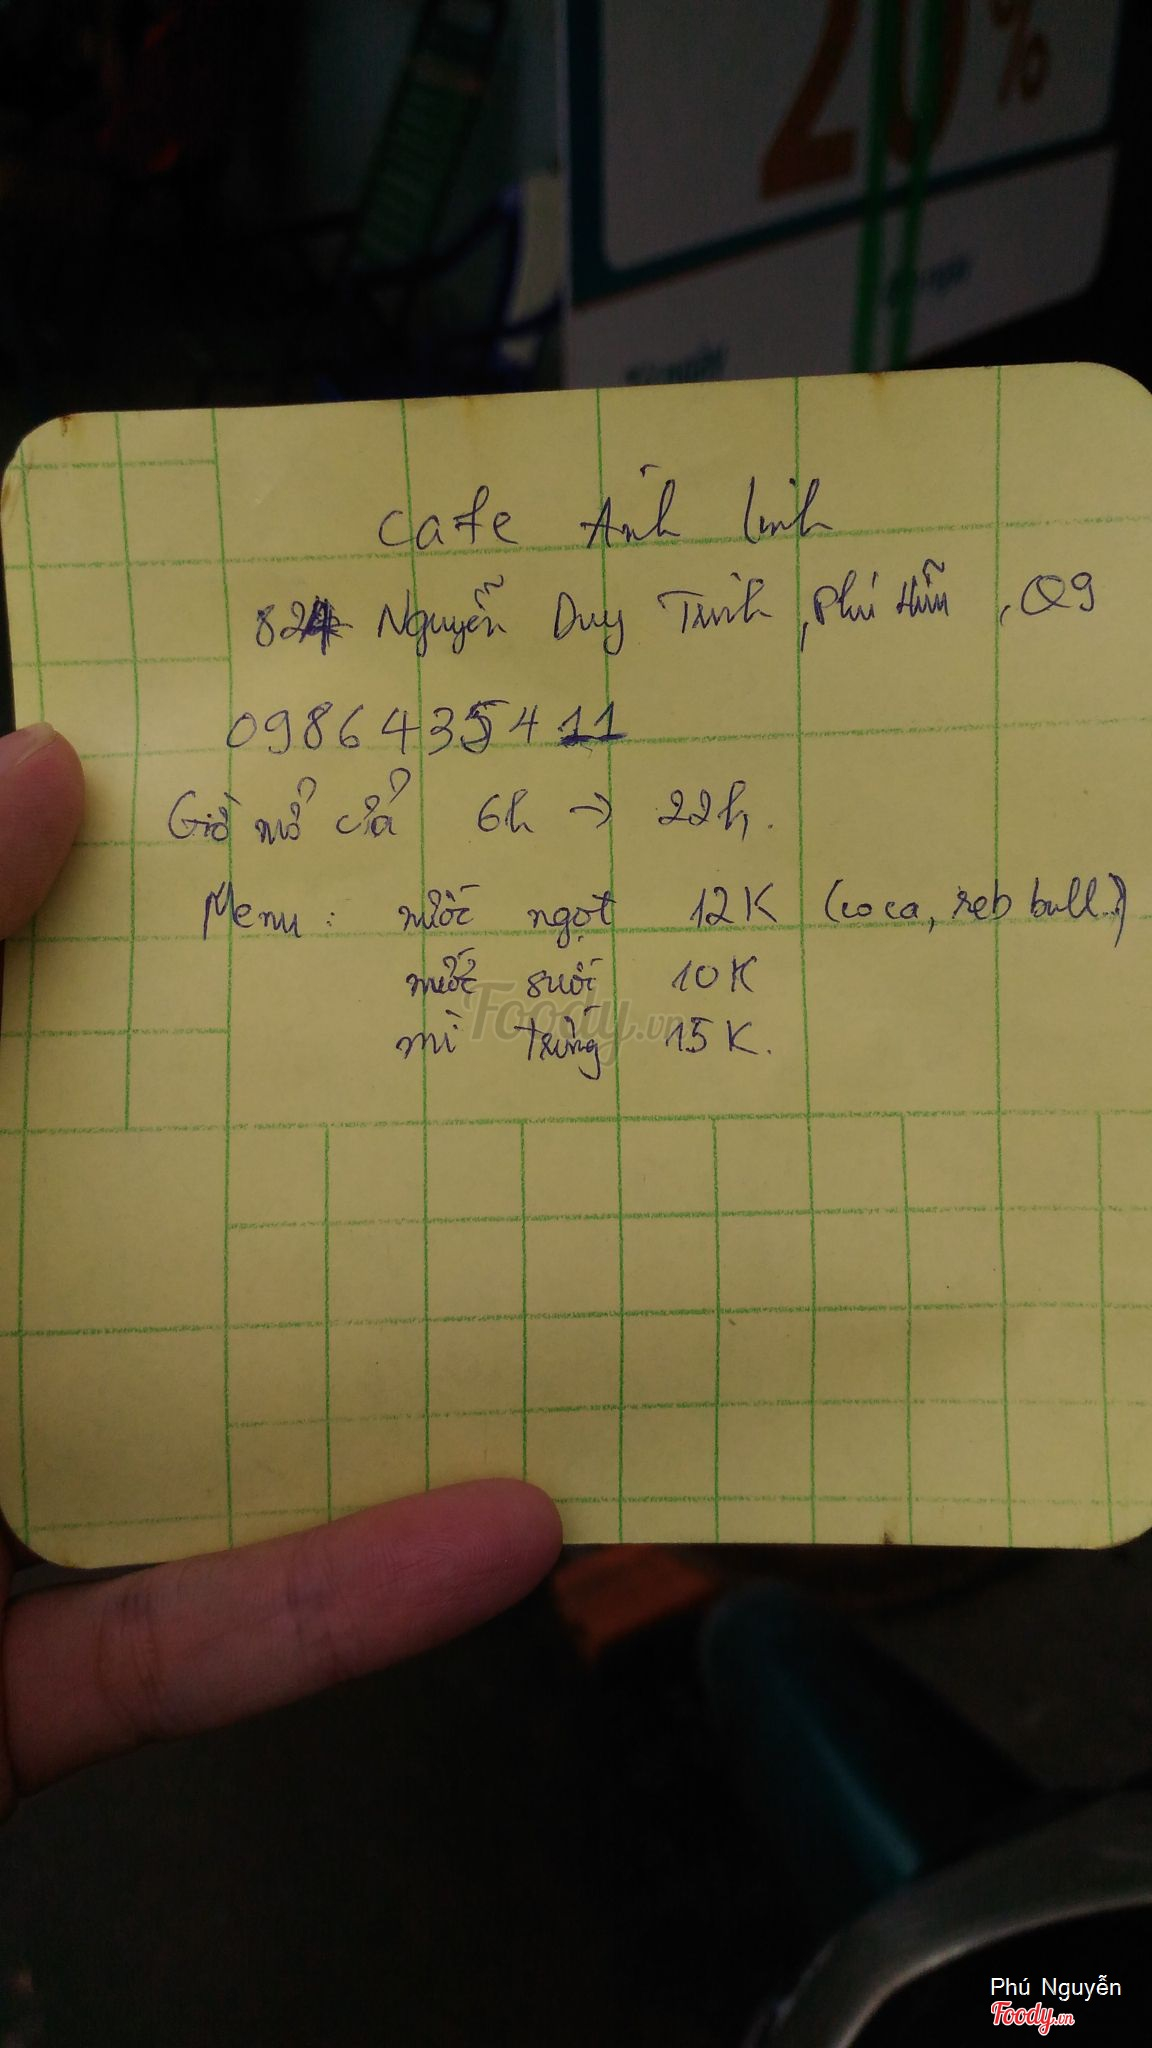 20%
Cafe Ánh Linh
824 Nguyễn Duy Trinh, Phú Hữu, Q9
0986435411
Giờ mở cửa 6h → 22h.
Menu: nước ngọt 12K (coca, reb bull..)
nước suối 10K
mì trứng 15K.
Foody.vn
Phú Nguyễn
Foody.vn